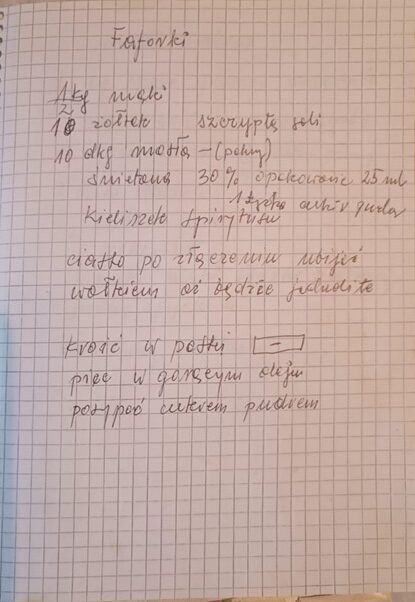 Faforki
1/2 kg mąki
10 żółtek szczyptą soli
10 dkg masła – (pokroj)
śmietana 30% opakowanie 25 ml
1 łyżka cukru pudru
Kieliszek spirytusu
ciasto po złączeniu ubijać
wałkiem aż będzie jednolite
kroić w paski
piec w gorącym oleju
posypać cukrem pudrem